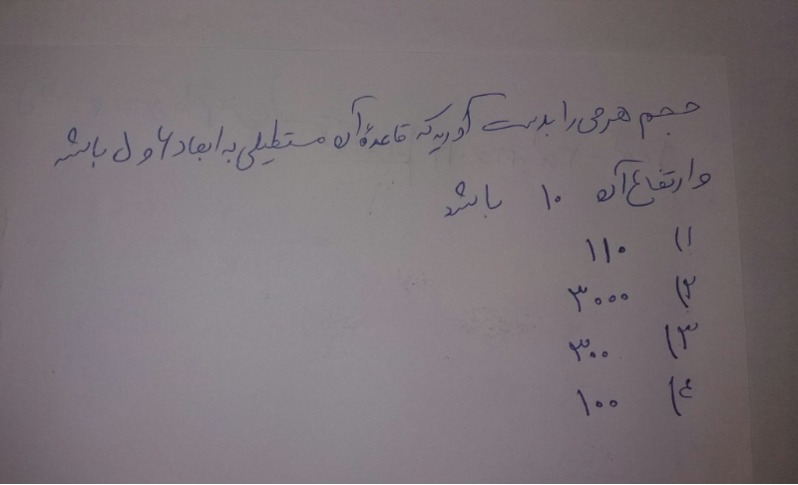 حجم هرمی را بدست آورید که قاعدهٔ آن مستطیلی به ابعاد ۶ و ۵ باشد
و ارتفاع آن ۱۰ باشد
۱) ۱۱۰
۲) ۳۰۰۰
۳) ۳۰۰
۴) ۱۰۰